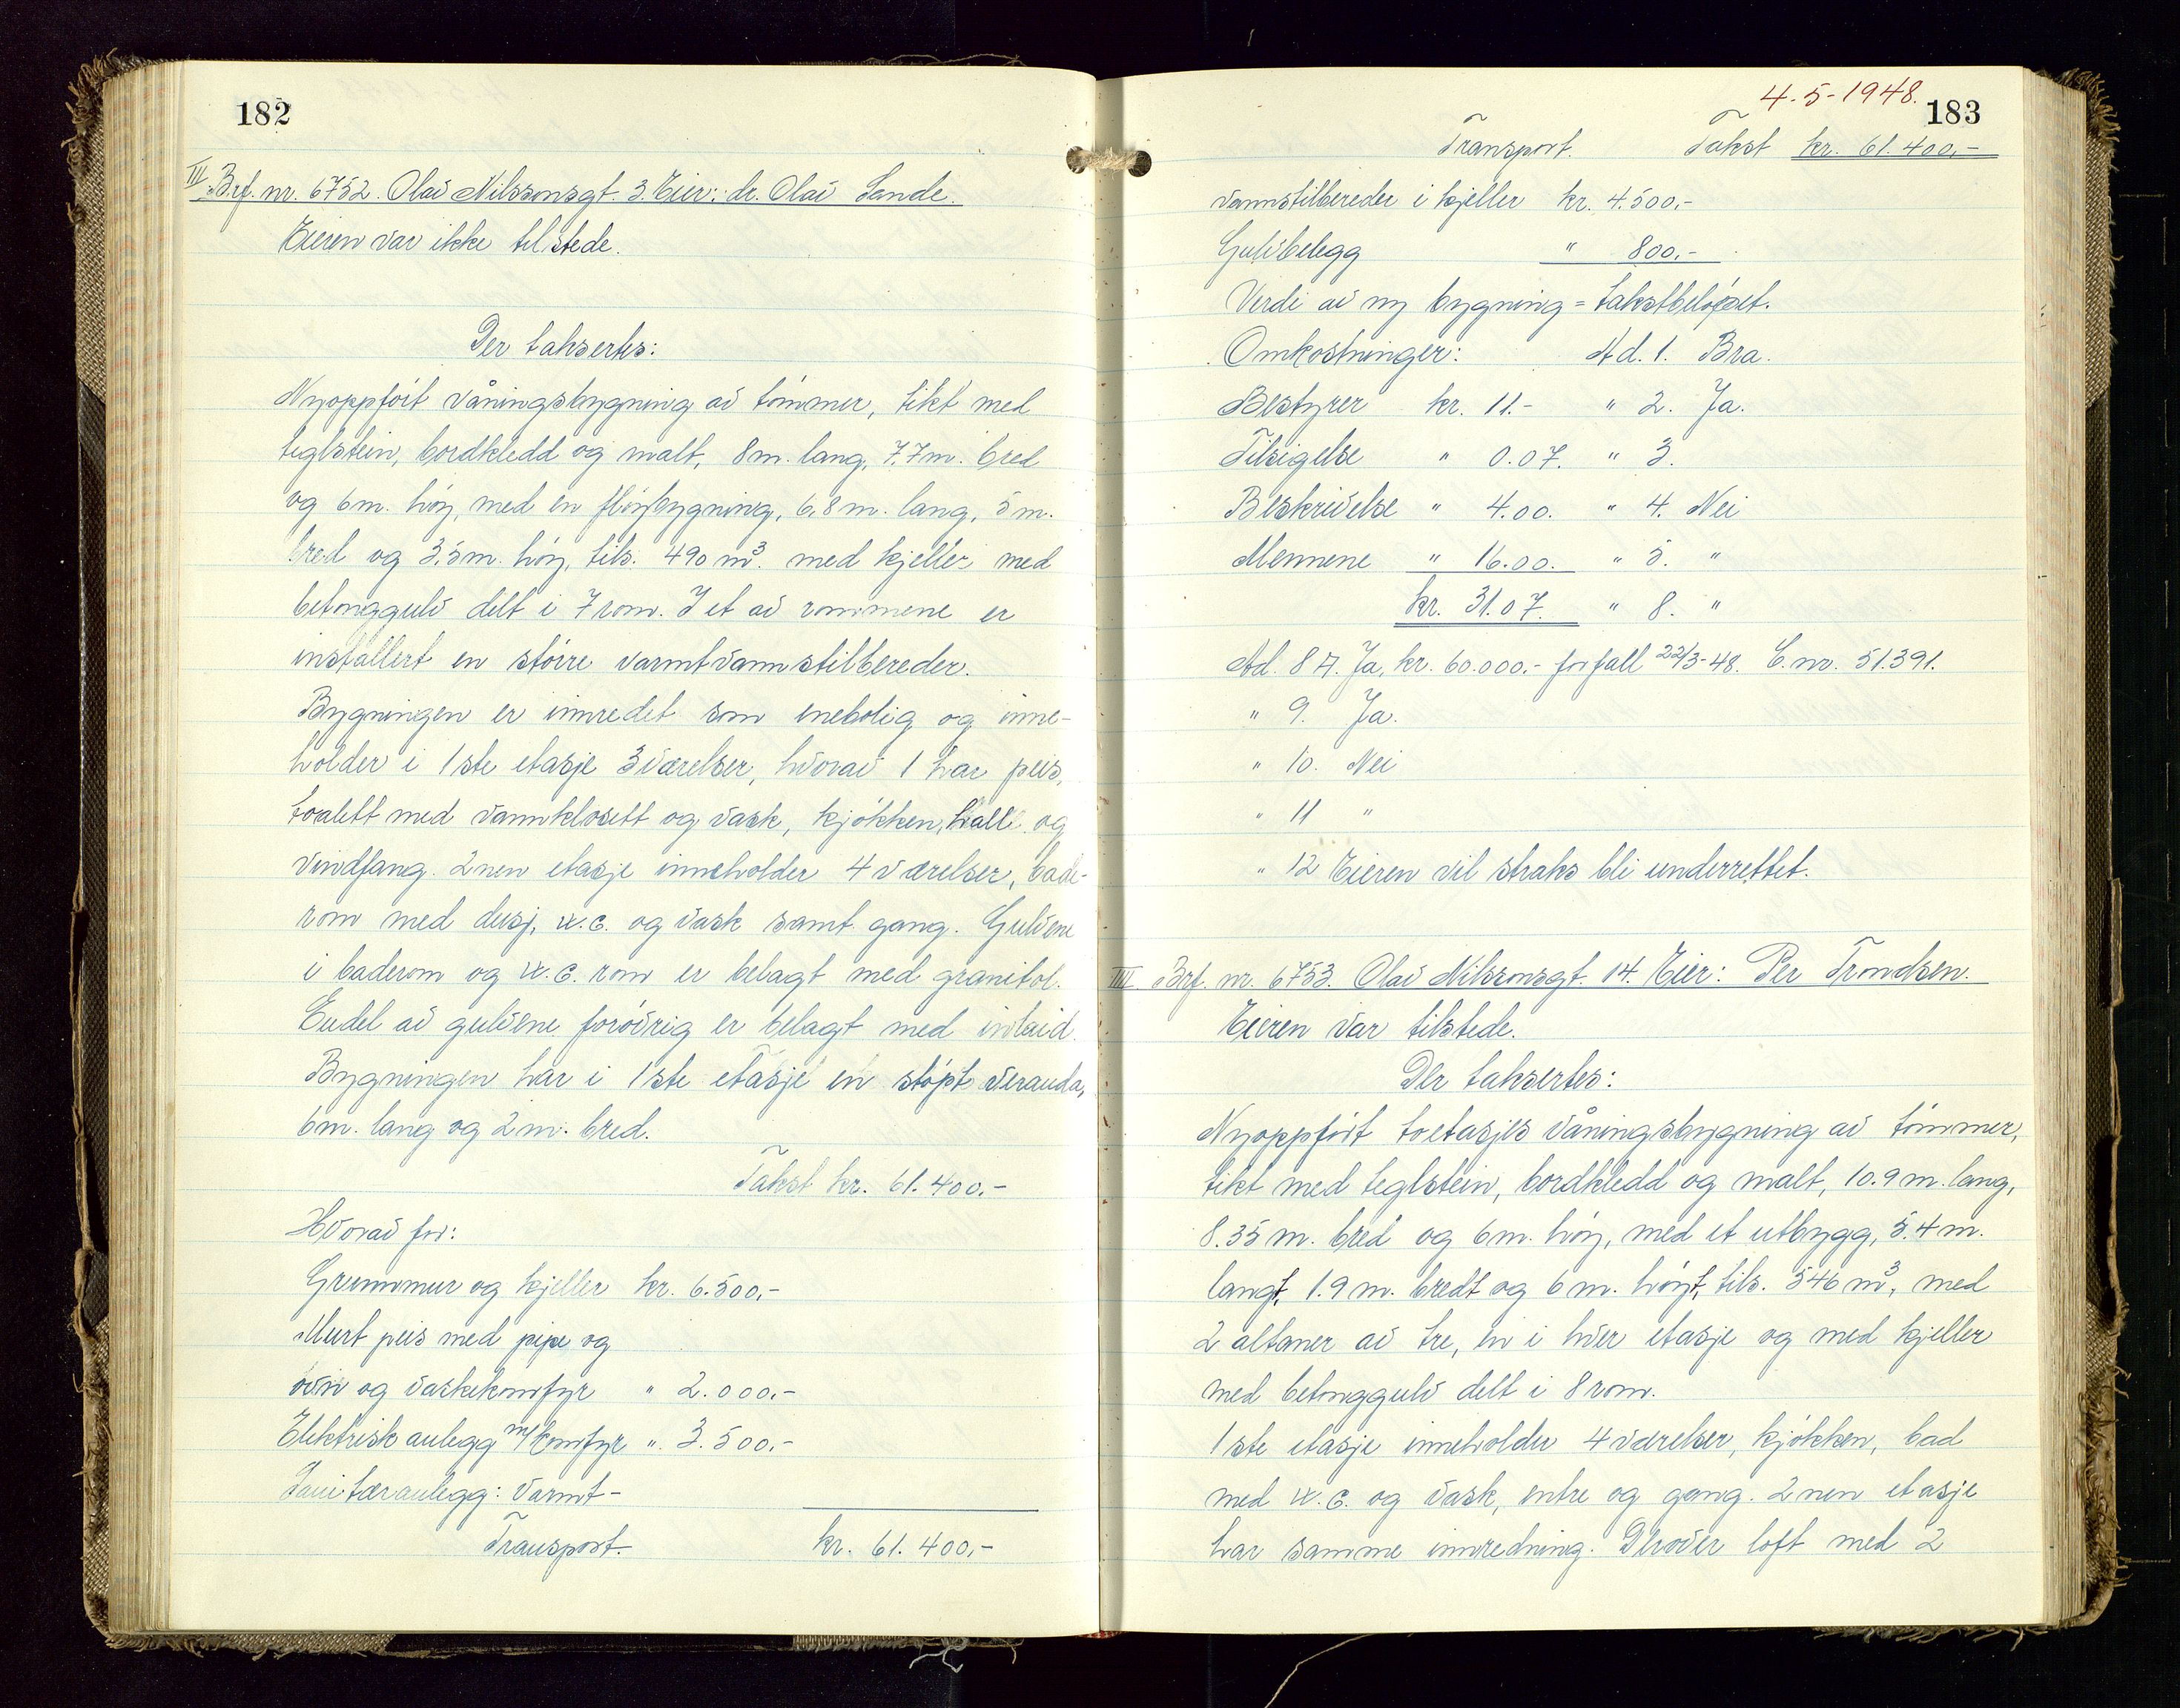 182
III. Brf. nr. 6752. Olav Nilssonsgt. 3. Eier: dr. Olav Sande.
Eieren var ikke tilstede.
Der taksertes:
Nyoppført våningsbygning av tømmer, tekt med
teglstein, bordkledd og malt, 8 m. lang, 7.7 m. bred
og 6 m. høy, med en fløybygning, 6,8 m. lang, 5 m.
bred og 3,5 m. høy, tils. 490 m³. med kjeller med
betonggulv delt i 7 rom. I et av rommene er
installert en større varmtvannstilbereder.
Bygningen er innredet som enebolig og inne-
holder i 1ste etasje 3 værelser, hvorav 1 har peis,
toalett med vannklosett og vask, kjøkken, hall og
vindfang. 2nen etasje inneholder 4 værelser, bade-
rom med dusj, w.c. og vask samt gang. Gulvene
i baderom og w.c. rom er belagt med granitol.
Endel av gulvene forøvrig er belagt med inlaid.
Bygningen har i 1ste etasje en støpt veranda,
6 m. lang og 2 m. bred.
Takst kr. 61.400.-
Hvorav for:
Grunnmur og kjeller kr. 6.500.-
Murt peis med pipe og
ovn og vaskekomfyr " 2.000.-
Elektrisk anlegg m/komfyr " 3.500.-
Sanitæranlegg: varmt-
Transport. kr. 61.400.-
4-5-1948.
183
Transport. Takst kr. 61.400.-
vannstilbereder i kjeller kr. 4.500.-
Gulvbelegg " 800.-
Verdi av ny bygning = takstbeløpet.
Omkostninger: Ad. 1. Bra.
Bestyrer kr. 11.- " 2. Ja.
Tilsigelse " 0.07. " 3.
Beskrivelse " 4.00. " 4. Nei
Mennene " 16.00. " 5. "
kr. 31.07. " 8. "
Ad. 8 A. Ja, kr. 60.000.- forfall 22/3-48. C. nr. 51.391.
" 9. Ja.
" 10. Nei
" 11 "
" 12 Eieren vil straks bli underrettet.
IIII Brf. nr. 6753. Olav Nilssonsgt. 14. Eier: Per Trondsen.
Eieren var tilstede.
Der taksertes:
Nyoppført toetasjes våningsbygning av tømmer,
tekt med teglstein, bordkledd og malt, 10.9 m. lang,
8.35 m. bred og 6 m. høy, med et utbygg, 5.4 m.
langt, 1.9 m. bredt og 6 m. høyt, tils. 546 m³, med
2 altaner av tre, en i hver etasje og med kjeller
med betonggulv delt i 8 rom.
1ste etasje inneholder 4 værelser, kjøkken, bad
med w.c. og vask, entre og gang. 2nen etasje
har samme innredning. Derover loft med 2